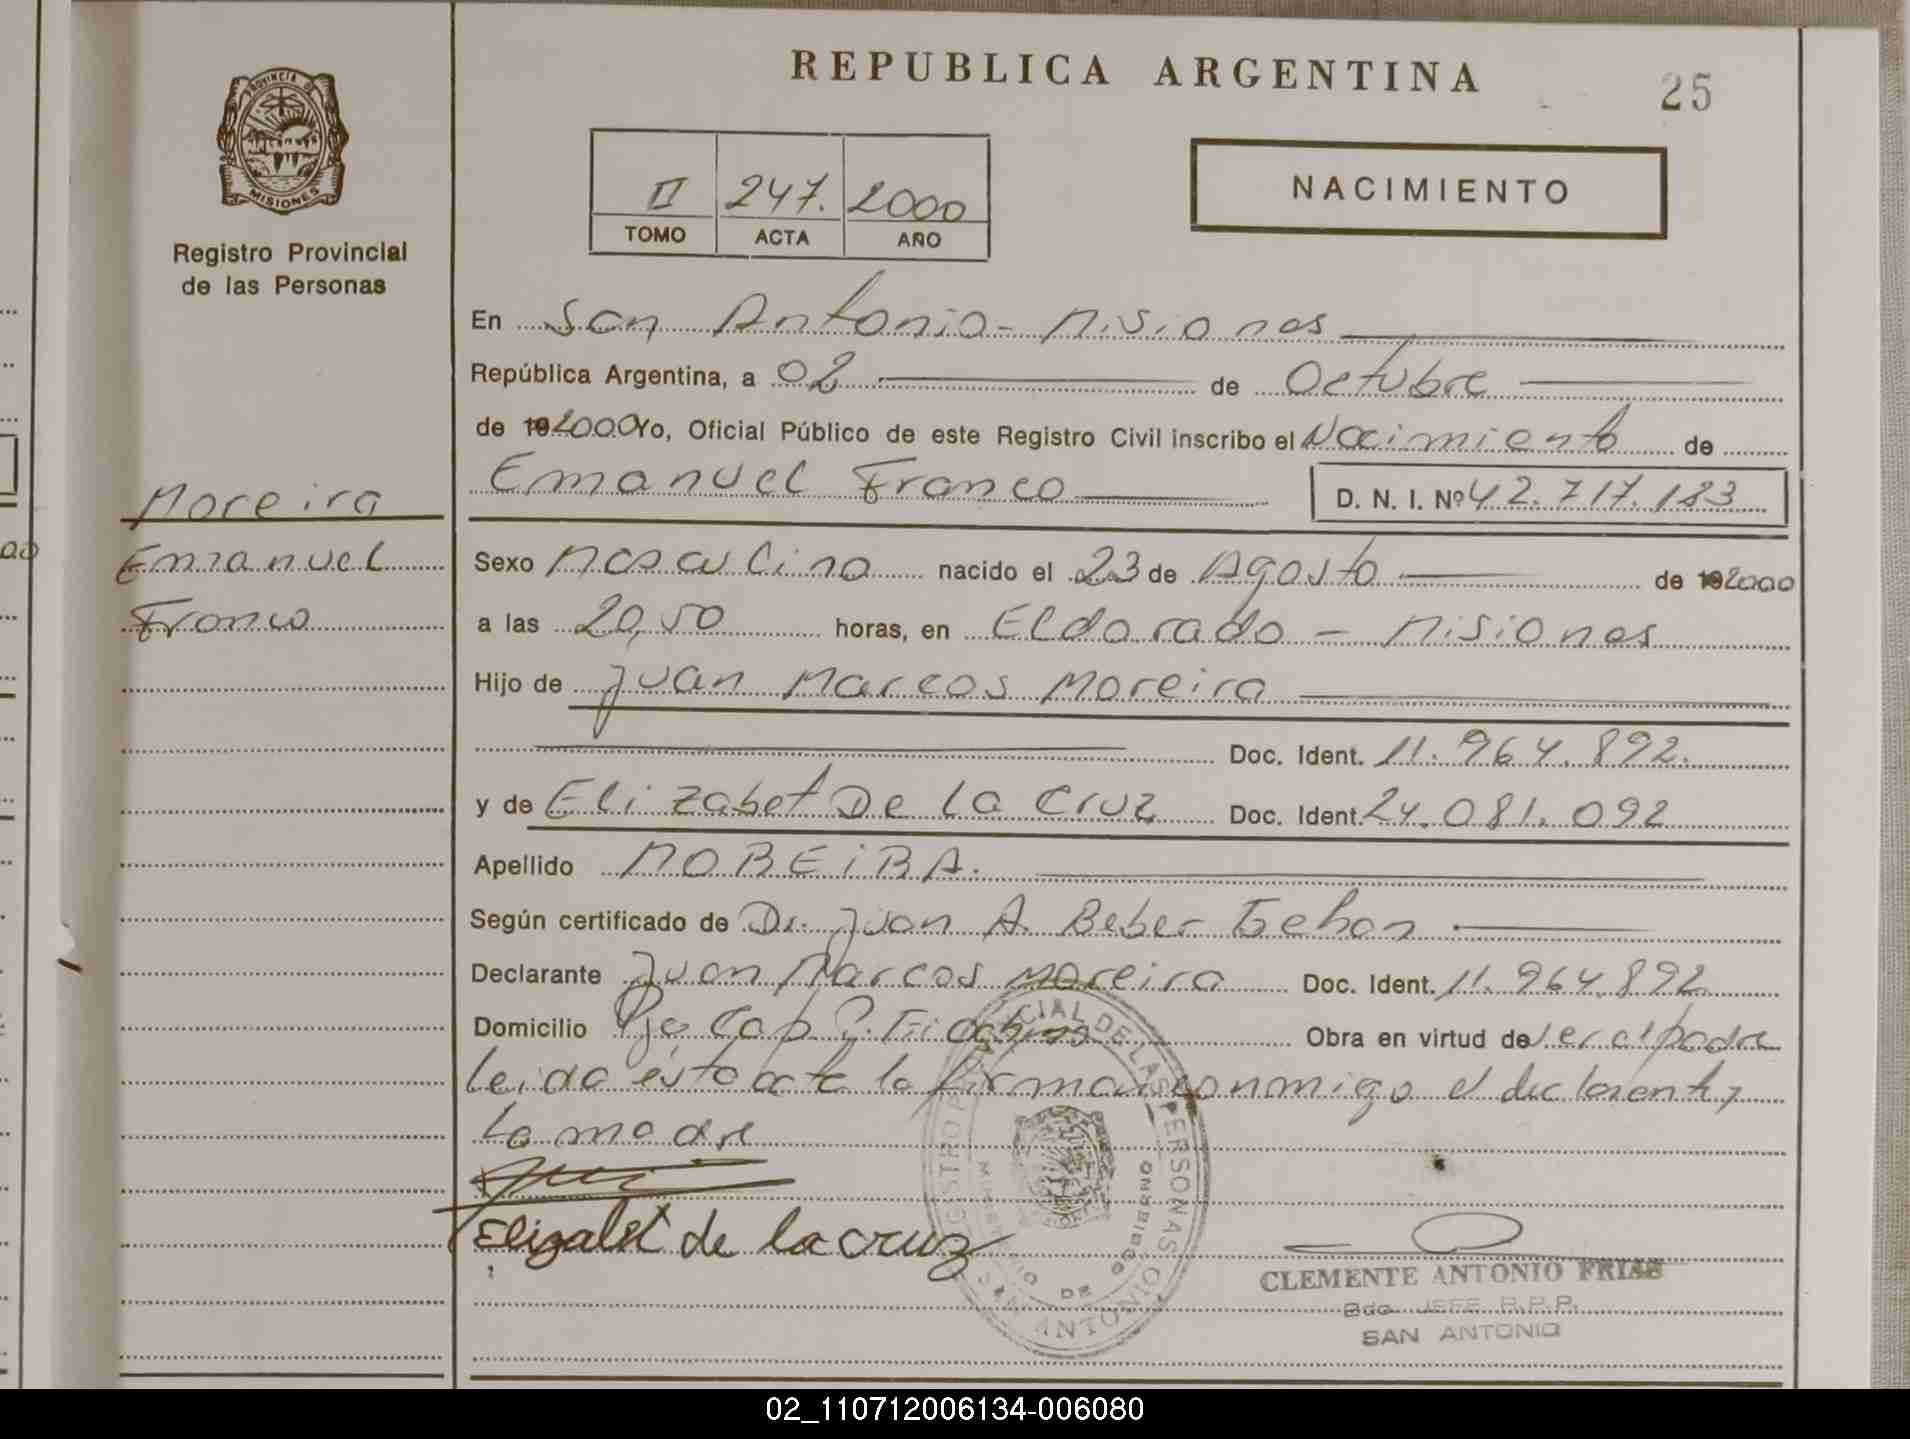 REPUBLICA ARGENTINA
25
PROVINCIA DE
MISIONES
Registro Provincial
de las Personas
II 247. 2000
TOMO ACTA AÑO
NACIMIENTO
En San Antonio - Misiones
República Argentina, a 02 de Octubre
de 192000 Yo, Oficial Público de este Registro Civil inscribo el Nacimiento de
Emanuel Franco D. N. I. Nº 42.717.183
Moreira
Emanuel
Franco
Sexo Masculino nacido el 23 de Agosto de 192000
a las 20,50 horas, en Eldorado - Misiones
Hijo de Juan Marcos Moreira
Doc. Ident. 11.964.892.
y de Elizabet De La Cruz Doc. Ident. 24.081.092
Apellido MOREIRA.
Según certificado de Dr. Juan A. Beber
Declarante Juan Marcos Moreira Doc. Ident. 11.964.892
Domicilio Pje Cap Obra en virtud de ser el padre
leida ésta acta la firman conmigo el declarante y
La madre
Elizabet de la cruz
REGISTRO PROVINCIAL DE LAS PERSONAS
MINISTERIO DE GOBIERNO
SAN ANTONIO
CLEMENTE ANTONIO FRIAS
JEFE R.P.P.
SAN ANTONIO
02_110712006134-006080